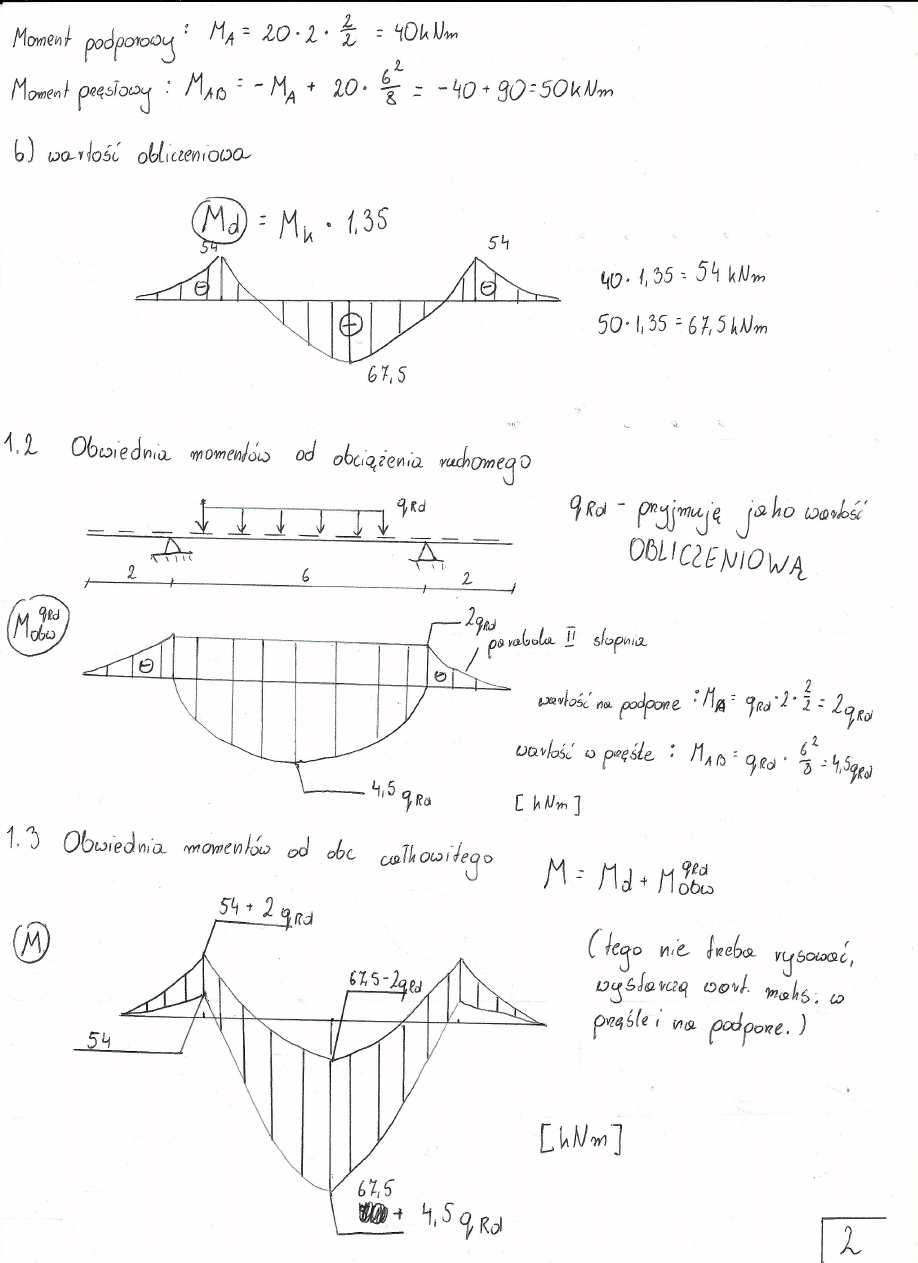 Moment podporowy : M_A = 20 · 2 · 2/2 = 40 kNm
Moment pręsłowy : M_AB = -M_A + 20 · 6²/8 = -40 + 90 = 50 kNm
b) wartość obliczeniowa
M_d = M_k · 1,35
54 54
⊖ ⊖
40 · 1,35 = 54 kNm
50 · 1,35 = 67,5 kNm
⊕
67,5
1.2 Obwiednia momentów od obciążenia ruchomego
q_Rd
q_Rd - pryjmują jako wartość
OBLICZENIOWĄ
2 6 2
M_obw^qRd
2q_Rd
parabola II stopnia
⊖ ⊖
wartość na podporze : M_A = q_Rd · 2 · 2/2 = 2q_Rd
wartość w pręśle : M_AB = q_Rd · 6²/8 = 4,5q_Rd
4,5 q_Rd
[kNm]
1.3 Obwiednia momentów od obc całkowitego
M = M_d + M_obw^qRd
M
54 + 2 q_Rd
67,5-2q_Rd
54
(tego nie treba rysować,
wystarczą wart. maks. w
pręśle i na podporze.)
[kNm]
67,5
+ 4,5 q_Rd
2